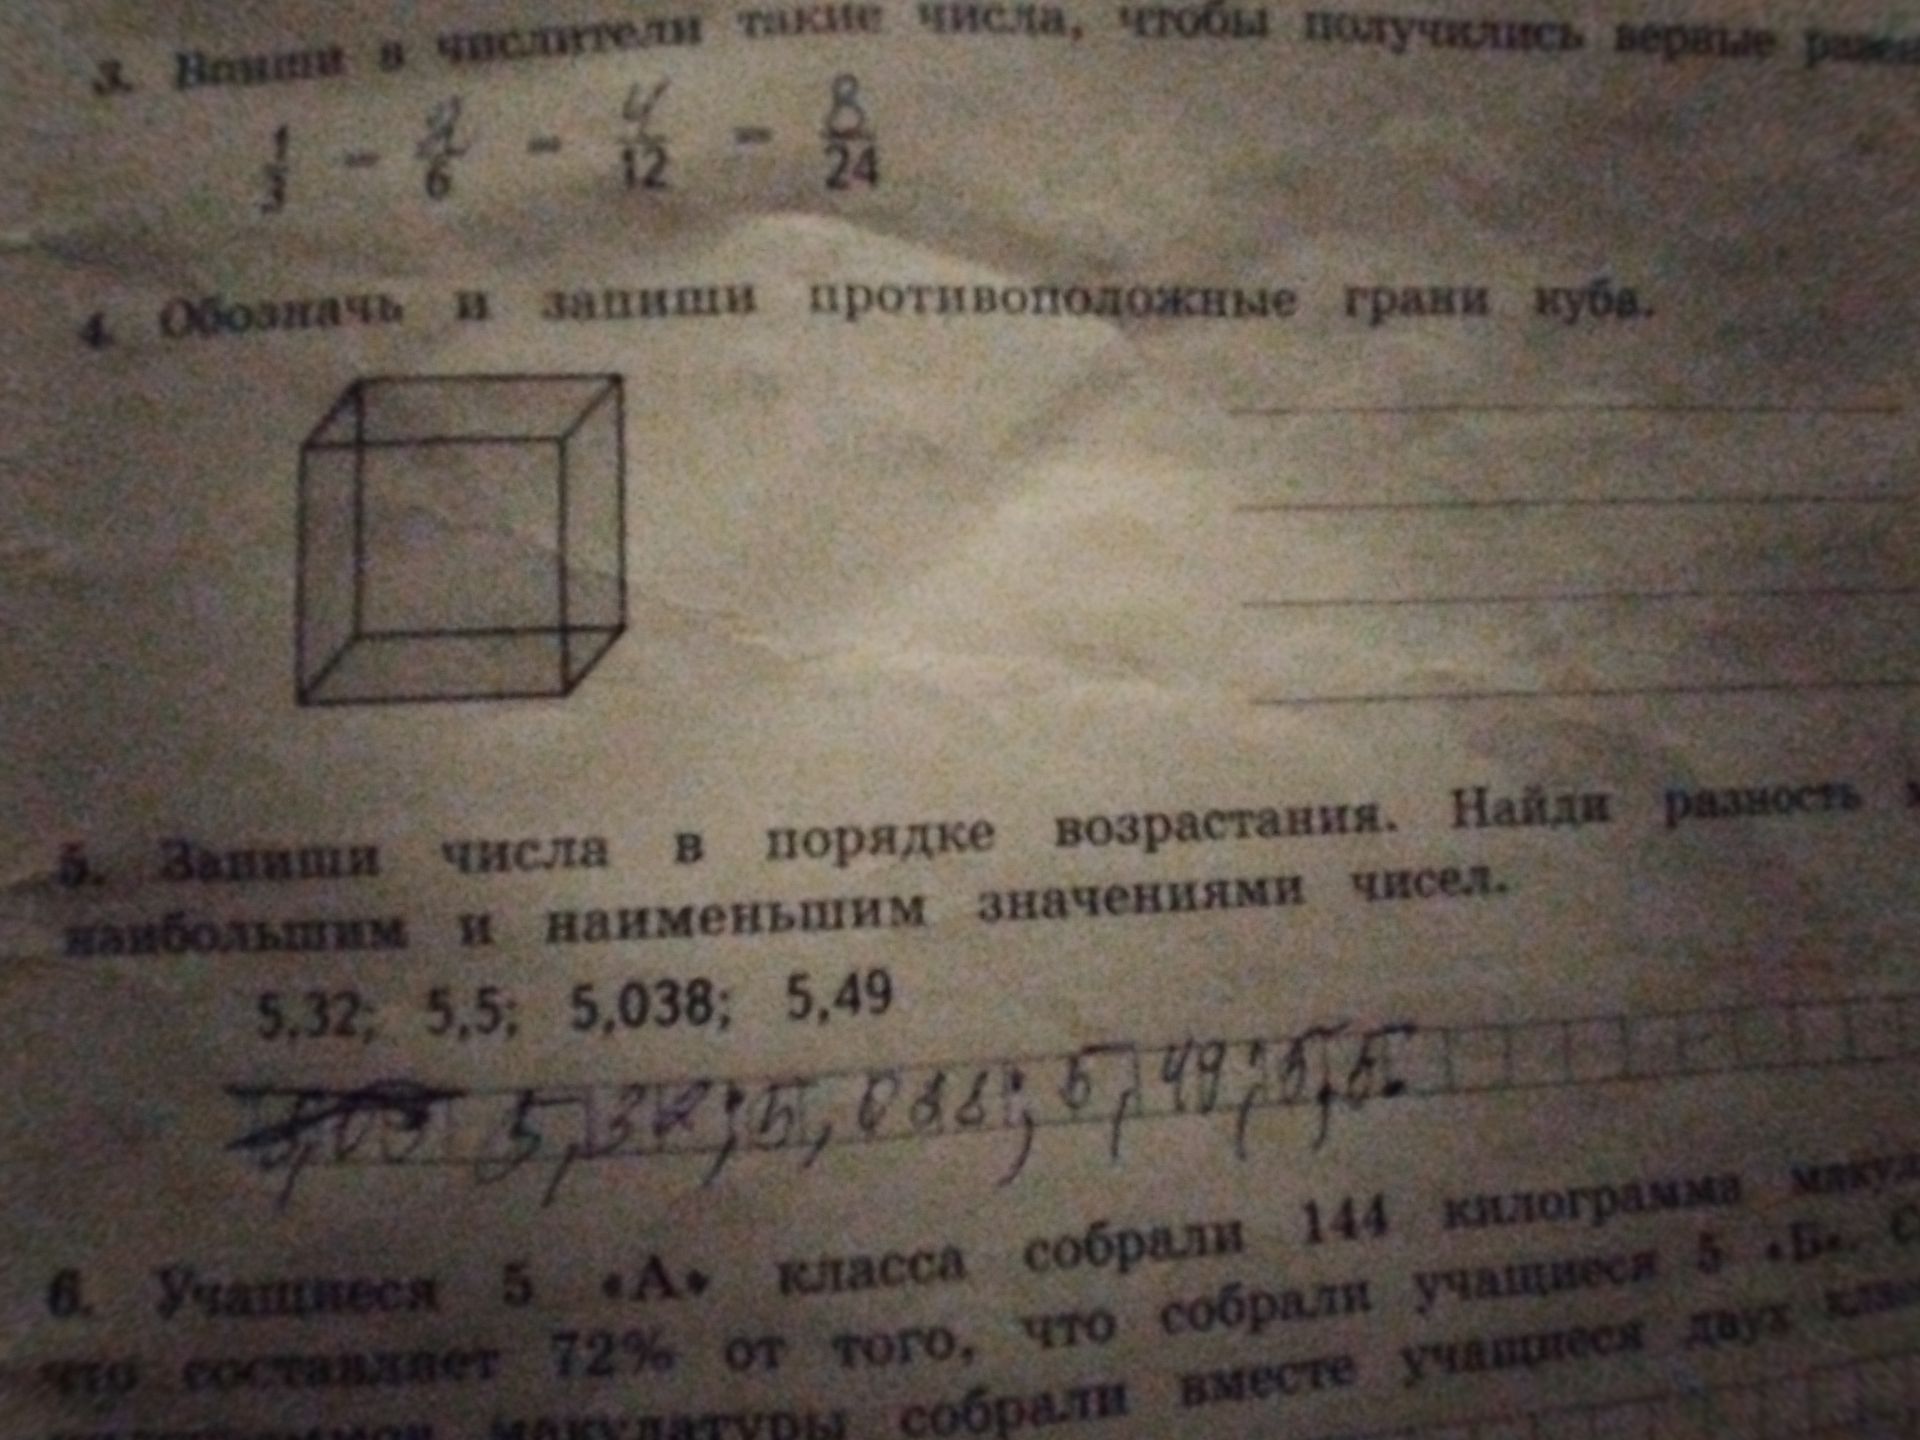 3. Впиши в числители такие числа, чтобы получились верные
1/3 = 2/6 = 4/12 = 8/24
4. Обозначь и запиши противоположные грани куба.
5. Запиши числа в порядке возрастания. Найди разность
наибольшим и наименьшим значениями чисел.
5,32; 5,5; 5,038; 5,49
5,03 5,32; 5, 5,49; 5,5.
6. Учащиеся 5 «А» класса собрали 144 килограмма
что составляет 72% от того, что собрали учащиеся 5 «Б».
макулатуры собрали вместе учащиеся двух